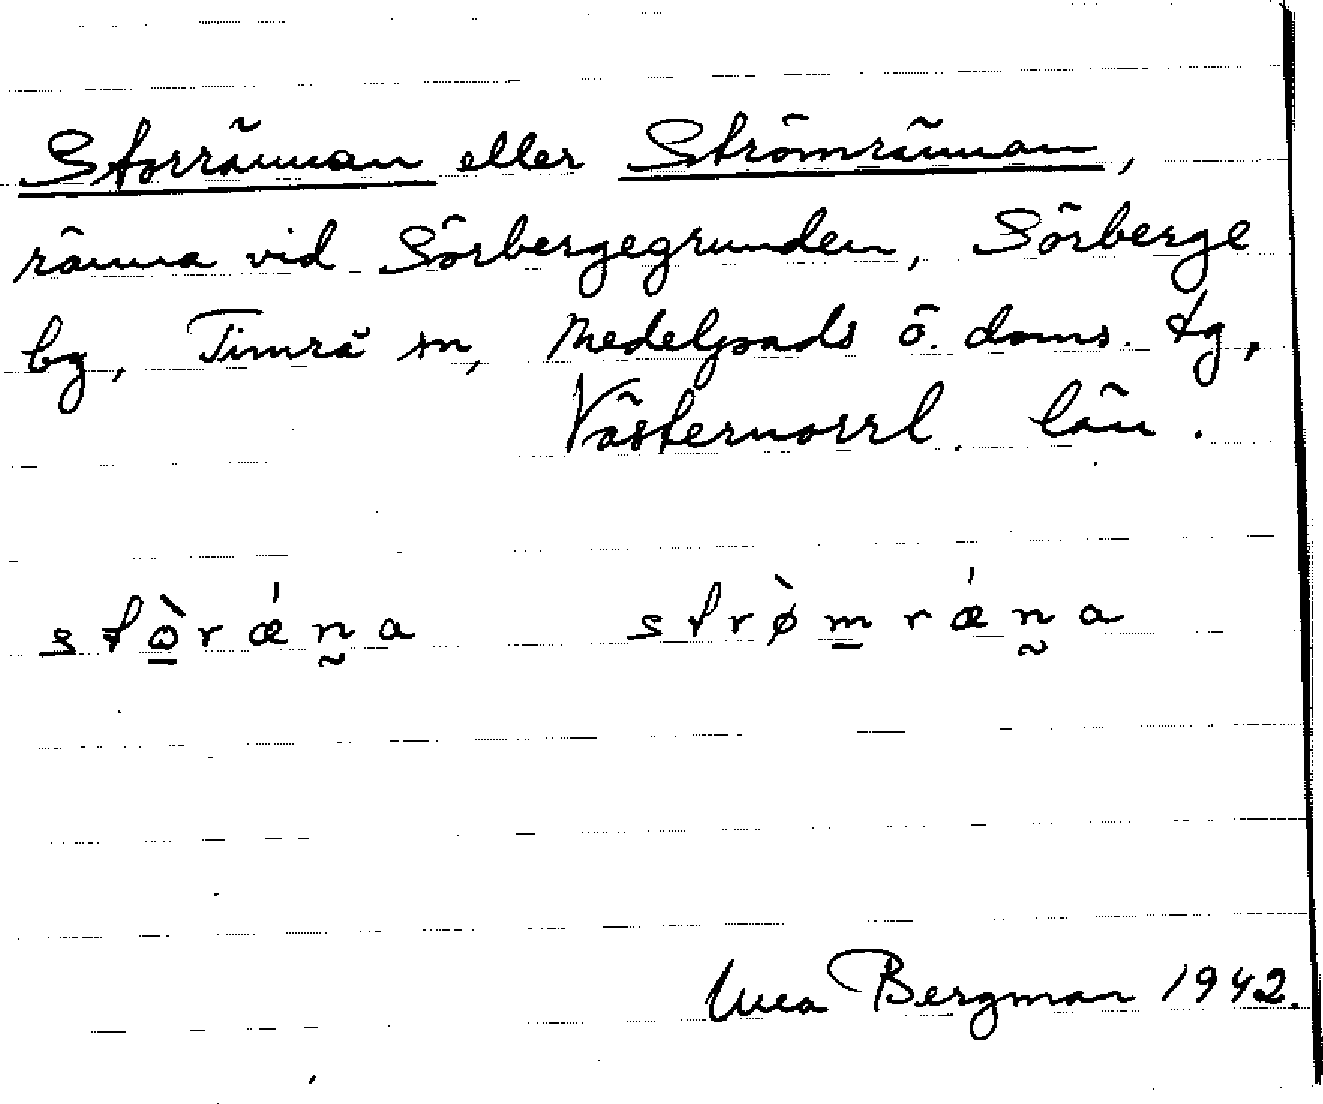 Storrännan eller Strömrännan,
ränna vid Sörbergegrunden, Sörberge
by, Timrå sn, Medelpads ö. doms. tg,
Västernorrl. län.
stò̱rǽn̰a strø̀m̱rǽn̰a
Bergman 1942.